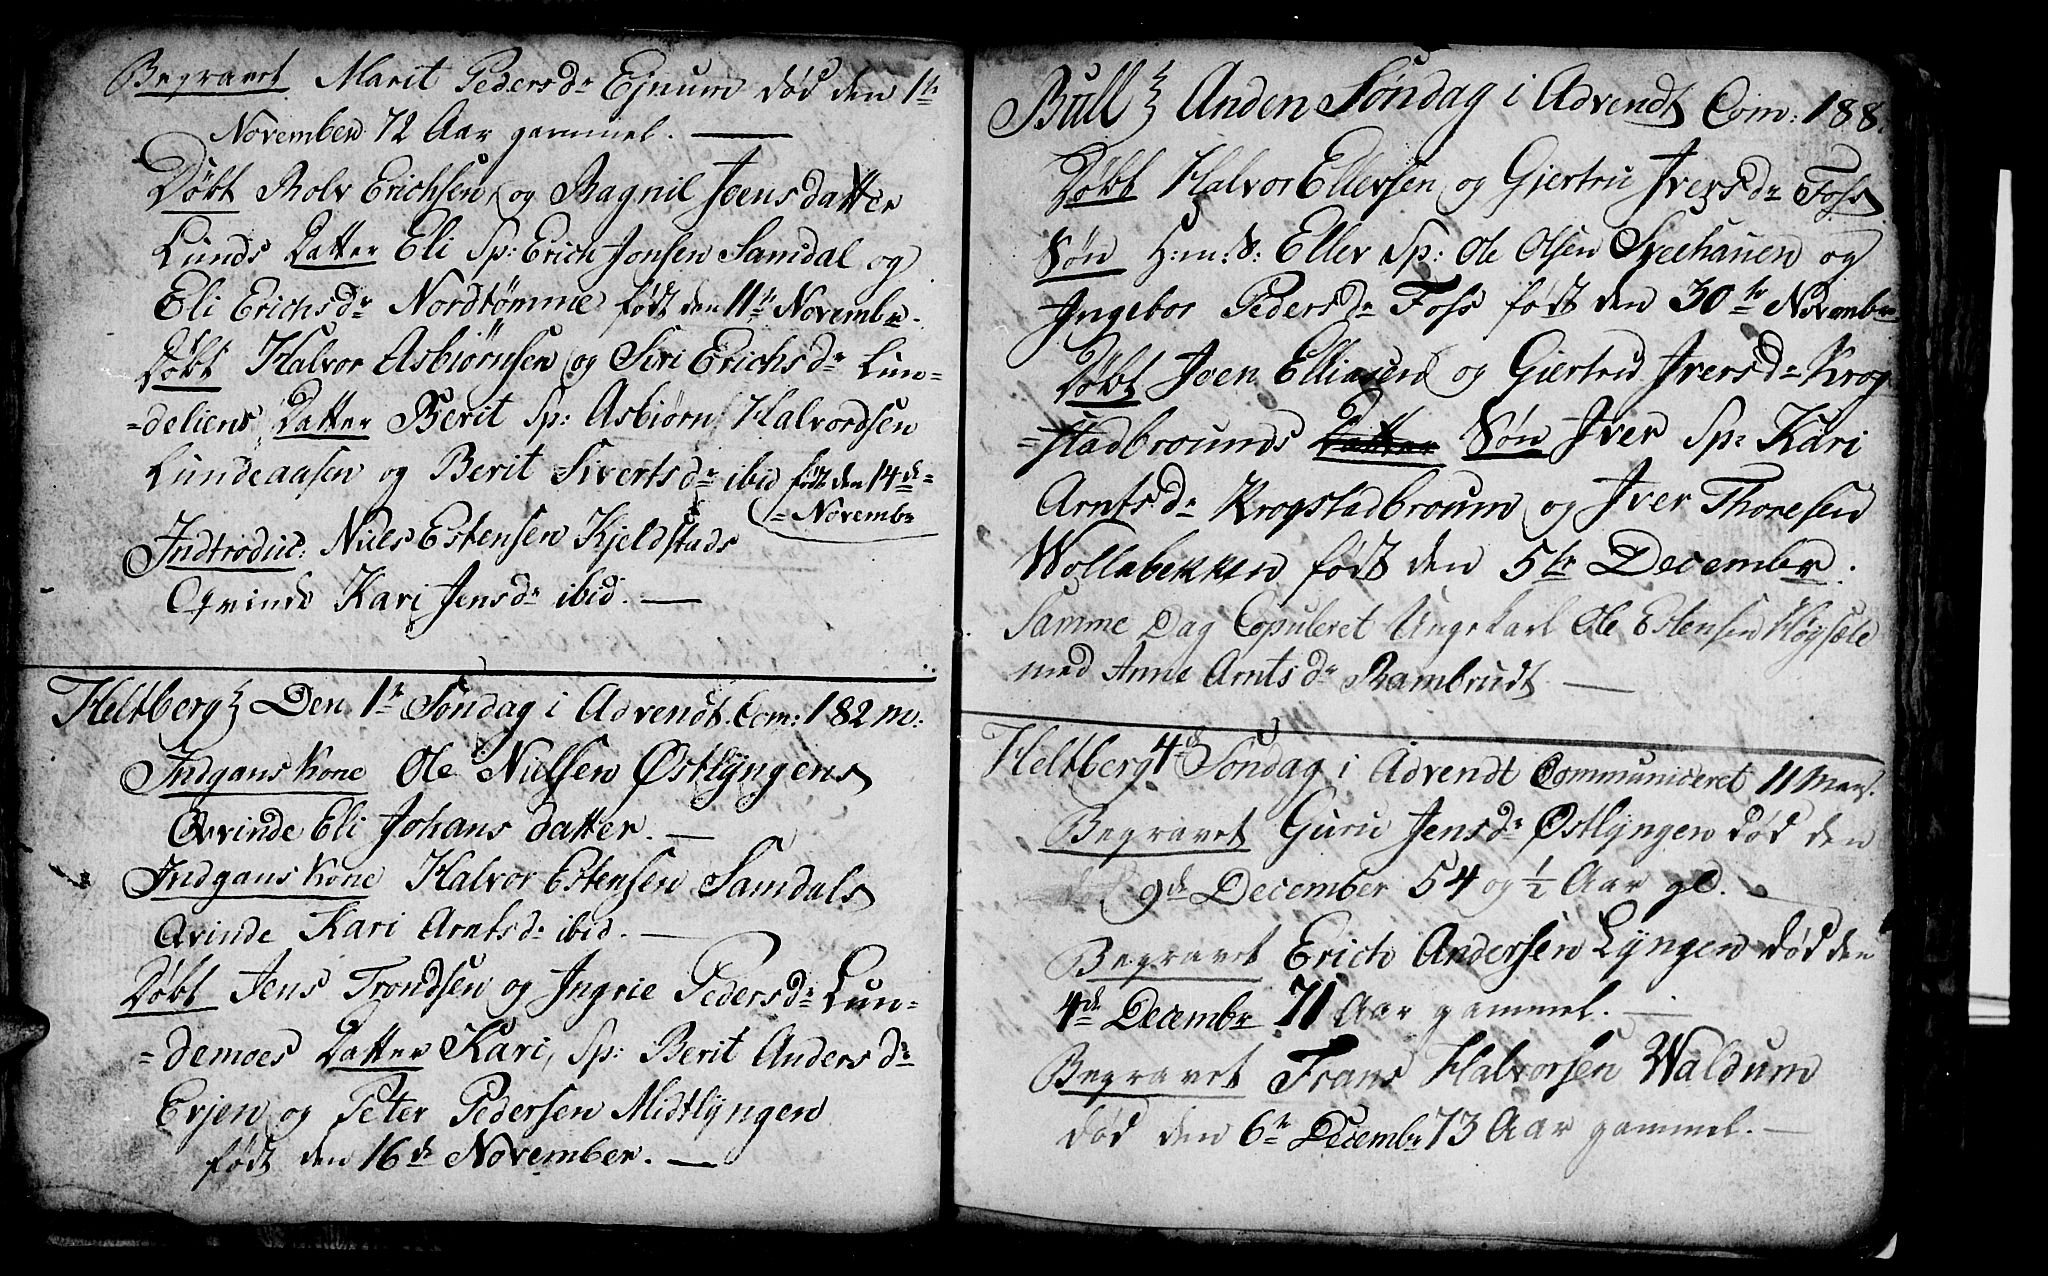 Begravet Marit Pedersdr Ejnum død den 1te
November 72 Aar gammel. —
Døbt Rolv Erichsen og Ragnil Joens datter
Lunds Datter Eli Sp: Erich Jonsen Samdal og
Eli Erichsdr Nordtømme født den 11te Novembr.
Døbt Halvor Asbiørnsen og Siri Erichsdr Lun-
=deliens Datter Berit Sp: Asbiørn Halvordsen
Lundeaasen og Berit Sivertsdr ibid født den 14de
= Novembr
Indtroduc: Niels Estensen Kjeldstads
Qvinde Kari Jensdr ibid. —
Heltberg Den 1te Søndag i Advendt Com: 182 m:
Indgans Kone Ole Nielsen Østlyngens
Qvinde Eli Johans datter. —
Indgans Kone Halvor Estensen Samdals
Qvinde Kari Arntsdr ibid. —
Døbt Jens Trondsen og Ingrie Pedersdr Lun-
=demoes Datter Kari, Sp: Berit Andersdr
Erjen og Peter Pedersen Midtlyngen
født den 16de November. —
Bull Anden Søndag i Advendt Com: 188.
Døbt Halvor Ellevsen og Gjertru Iversdr Foss
Søn H:m:N: Ellev Sp: Ole Olsen Sveehauen og
Ingebor Pedersdr Foss født den 30te Novembr
Døbt Joen Elliasen og Giertru Iversdr Krog
=stadbrounds Datter Søn Iver Sp: Kari
Arntsdr Krogstadbroum og Iver Thoresen
Wollabekken født den 5te Decembr.
Samme Dag Copuleret Ungekarl Ole Estensen Høysæte
med Anne Arntsdr Rambrudt —
Heltberg 4de Søndag i Advendt Communiceret 11 Mens.
Begravet Guru Jensdr Østlyngen død den
9de December 54 og ½ Aar gl.
Begravet Erich Andersen Lyngen død den
4de Decembr 71 Aar gammel. —
Begravet Frans Halvorsen Waldum
død den 6te Decembr 73 Aar gammel. —